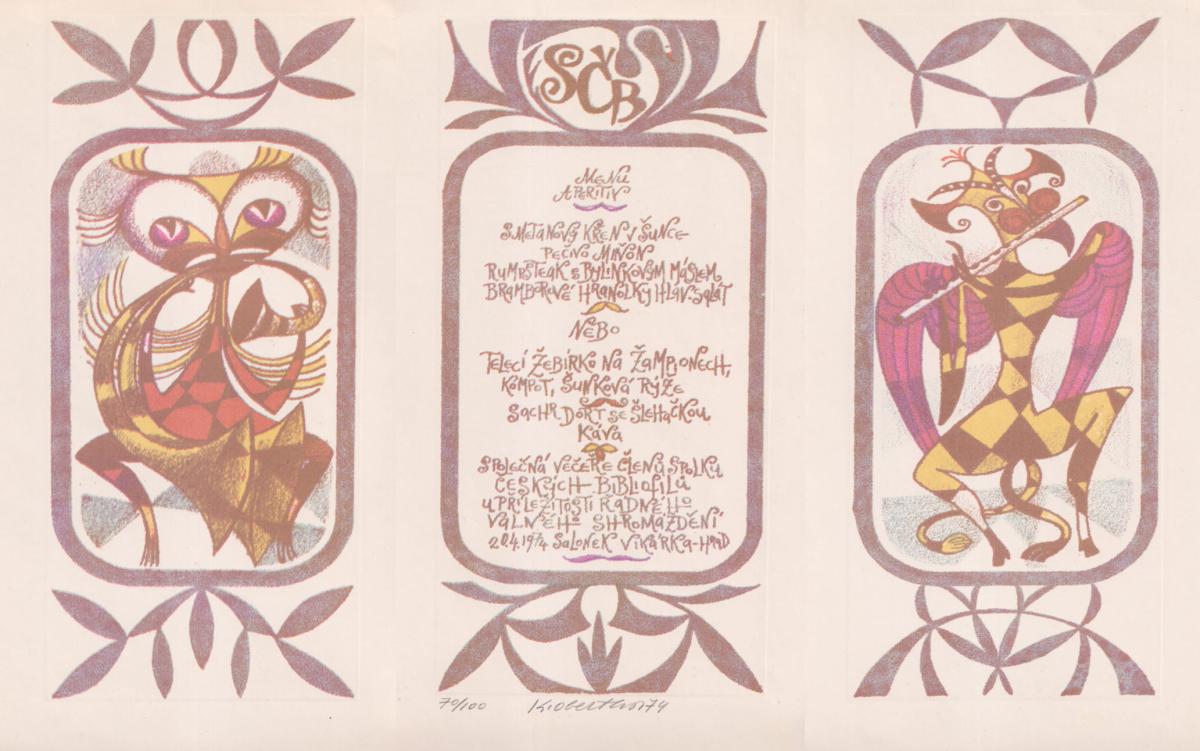 SČB
MENU
APERITIV
SMETANOVÝ KŘEN V ŠUNCE
PEČNO MIŇON
RUMPSTEAK S BYLINKOVÝM MÁSLEM,
BRAMBOROVÉ HRANOLKY HLAV. SALÁT
NEBO
TELECÍ ŽEBÍRKO NA ŽAMPIONECH,
KOMPOT, ŠUNKOVÁ RÝŽE
SACHR DORT SE ŠLEHAČKOU
KÁVA
SPOLEČNÁ VEČEŘE ČLENŮ SPOLKU
ČESKÝCH BIBLIOFILŮ
U PŘÍLEŽITOSTI ŘÁDNÉHO
VALNÉHO SHROMÁŽDĚNÍ
20.4.1974 SALONEK VIKÁRKA-HRAD
70/100 74